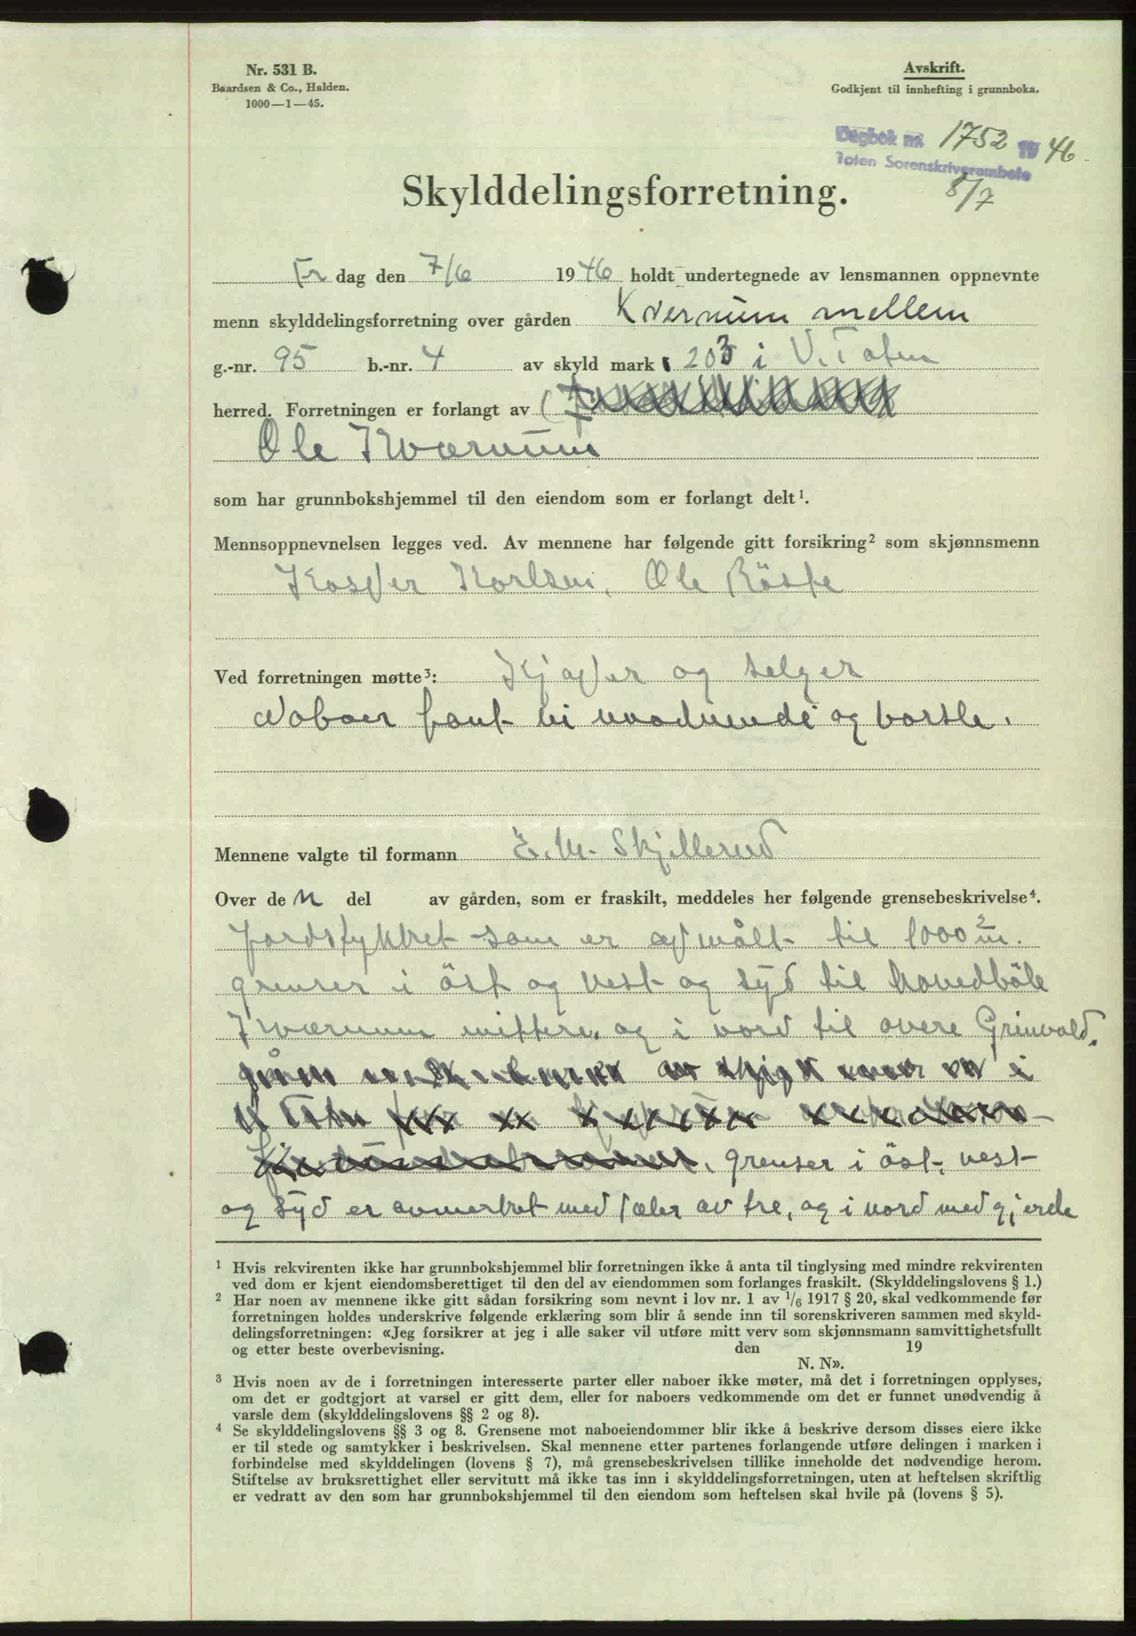 Nr. 531 B.
Baardsen & Co., Halden.
1000—1—45.
Avskrift.
Godkjent til innhefting i grunnboka.
Dagbok nr. 1752 19 46.
Toten Sorenskriverembete
8/7
Skylddelingsforretning.
Fr dag den 7/6 1946 holdt undertegnede av lensmannen oppnevnte
menn skylddelingsforretning over gården Kvernum mellem
g.-nr. 95 b.-nr. 4 av skyld mark 203 i V. Toten
herred. Forretningen er forlangt av
Ole Kværnum
som har grunnbokshjemmel til den eiendom som er forlangt delt¹.
Mennsoppnevnelsen legges ved. Av mennene har følgende gitt forsikring² som skjønnsmenn
Kasper Karlsen, Ole Röste
Ved forretningen møtte³: Kjøper og selger
Naboer fant vi unødvende og varsle.
Mennene valgte til formann E. M. Skjellerud
Over de n del av gården, som er fraskilt, meddeles her følgende grensebeskrivelse⁴.
Jordstykket som er opmålt til 1000 m².
grenser i öst og vest og syd til hovedböle
Kværnum mittere og i nord til övere Grinvold.
grenser i öst, vest
og syd er avmerket med pæler av tre, og i nord med gjerde
¹ Hvis rekvirenten ikke har grunnbokshjemmel blir forretningen ikke å anta til tinglysing med mindre rekvirenten
ved dom er kjent eiendomsberettiget til den del av eiendommen som forlanges fraskilt. (Skylddelingslovens § 1.)
² Har noen av mennene ikke gitt sådan forsikring som nevnt i lov nr. 1 av 1/6 1917 § 20, skal vedkommende før
forretningen holdes underskrive følgende erklæring som blir å sende inn til sorenskriveren sammen med skyld-
delingsforretningen: «Jeg forsikrer at jeg i alle saker vil utføre mitt verv som skjønnsmann samvittighetsfullt
og etter beste overbevisning. den 19
N. N».
³ Hvis noen av de i forretningen interesserte parter eller naboer ikke møter, må det i forretningen opplyses,
om det er godtgjort at varsel er gitt dem, eller for naboers vedkommende om det er funnet unødvendig å
varsle dem (skylddelingslovens §§ 2 og 8).
⁴ Se skylddelingslovens §§ 3 og 8. Grensene mot naboeiendommer blir ikke å beskrive dersom disses eiere ikke
er til stede og samtykker i beskrivelsen. Skal mennene etter partenes forlangende utføre delingen i marken i
forbindelse med skylddelingen (lovens § 7), må grensebeskrivelsen tillike inneholde det nødvendige herom.
Stiftelse av bruksrettighet eller servitutt må ikke tas inn i skylddelingsforretningen, uten at heftelsen skriftlig
er vedratt av den som har grunnbokshjemmel til den eiendom som heftelsen skal hvile på (lovens § 5).